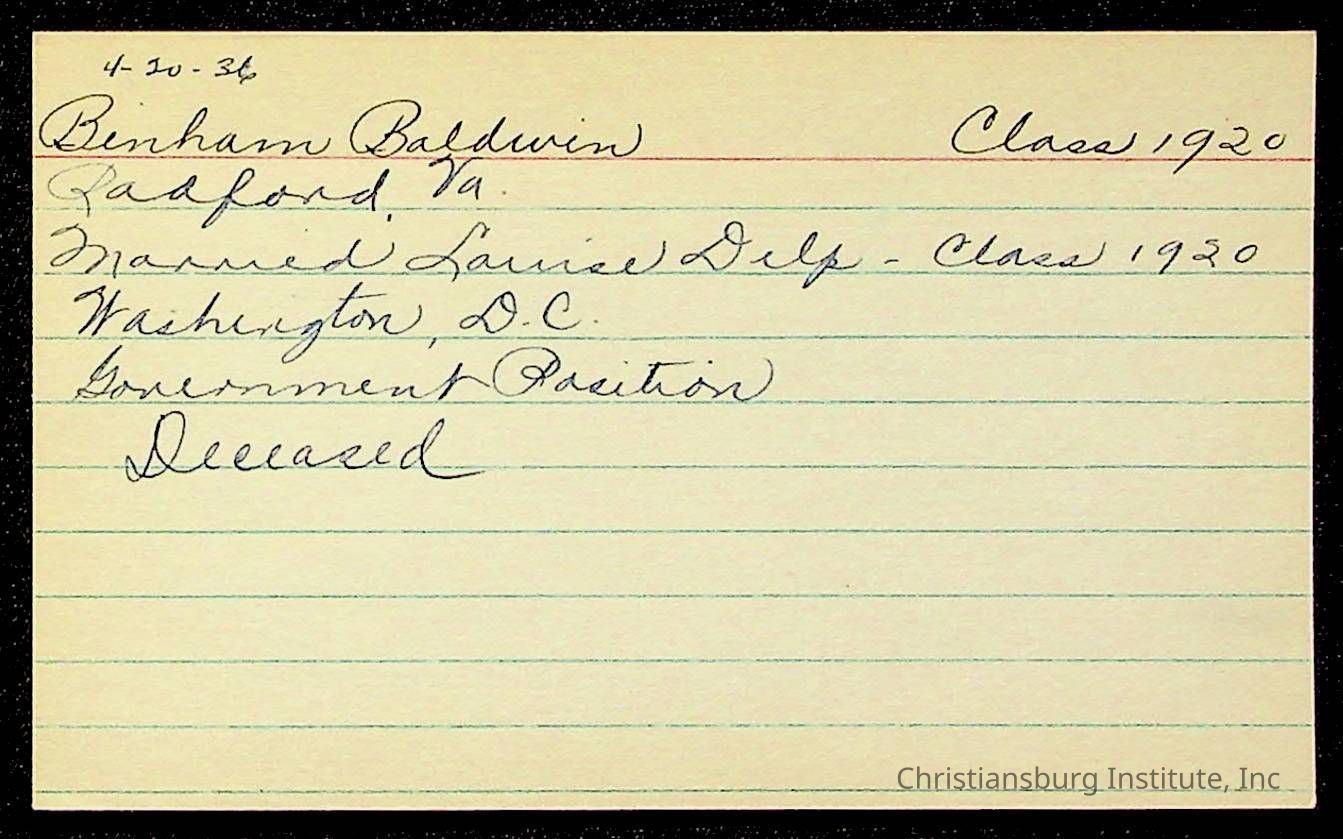 4-20-36
Benham Baldwin Class 1920
Radford, Va.
Married Louise Delp - Class 1920
Washington, D.C.
Government Position
Deceased
Christiansburg Institute, Inc